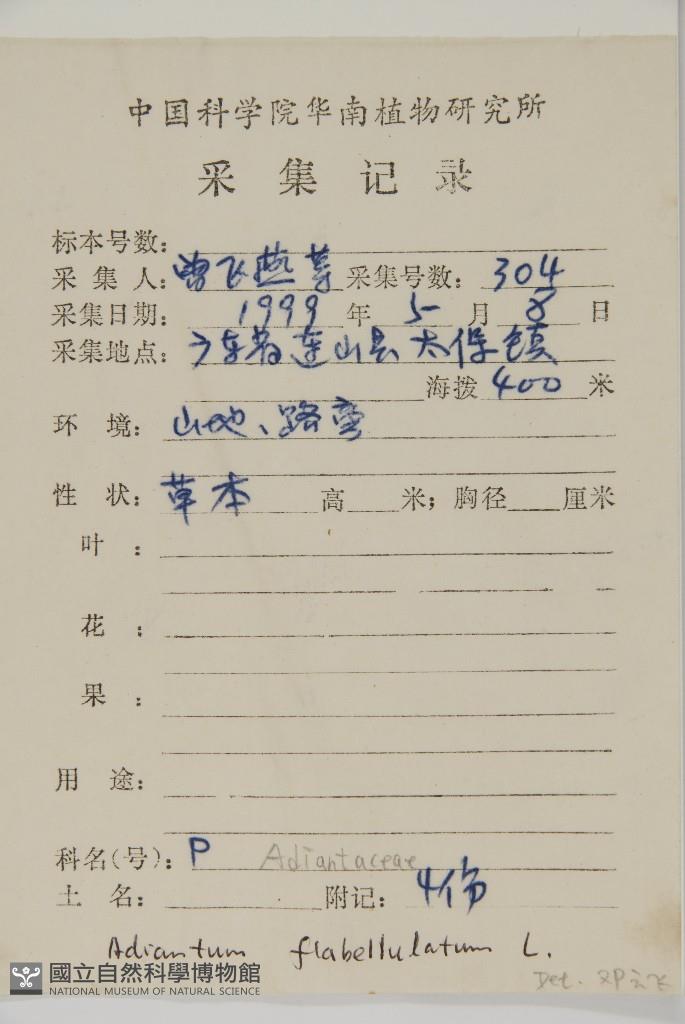 中国科学院华南植物研究所
采集记录
标本号数：
采集人：曾飞燕等 采集号数：304
采集日期：1999年5月8日
采集地点：广东省连山县太保镇
海拨400米
环境：山地、路旁
性状：草本 高 米；胸径 厘米
叶：
花：
果：
用途：
科名(号)：P Adiantaceae
土名： 附记：4份
Adiantum flabellulatum L.
Det.
國立自然科學博物館
NATIONAL MUSEUM OF NATURAL SCIENCE